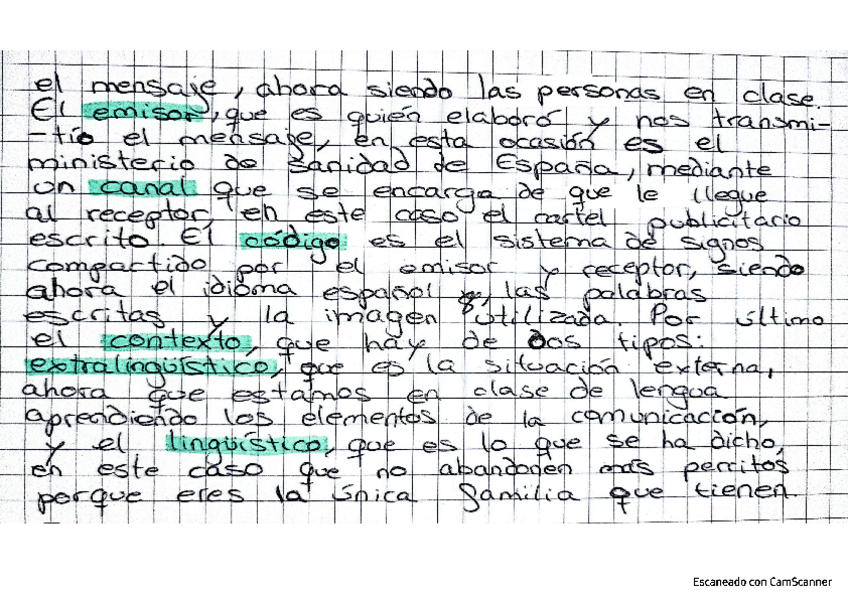 el mensaje, ahora siendo las personas en clase.
El emisor, que es quién elaboró y nos transmi-
-tío el mensaje, en esta ocasión es el
ministerio de Sanidad de España, mediante
un canal que se encarga de que le llegue
al receptor, en este caso el cartel publicitario
escrito. El código es el sistema de signos
compartido por el emisor y receptor, siendo
ahora el idioma español y, las palabras
escritas y la imagen utilizada. Por último
el contexto, que hay de dos tipos:
extralingüístico, que es la situación externa,
ahora que estamos en clase de lengua
aprendiendo los elementos de la comunicación,
y el lingüístico, que es lo que se ha dicho,
en este caso que no abandonen más perritos
porque eres la única familia que tienen.
Escaneado con CamScanner